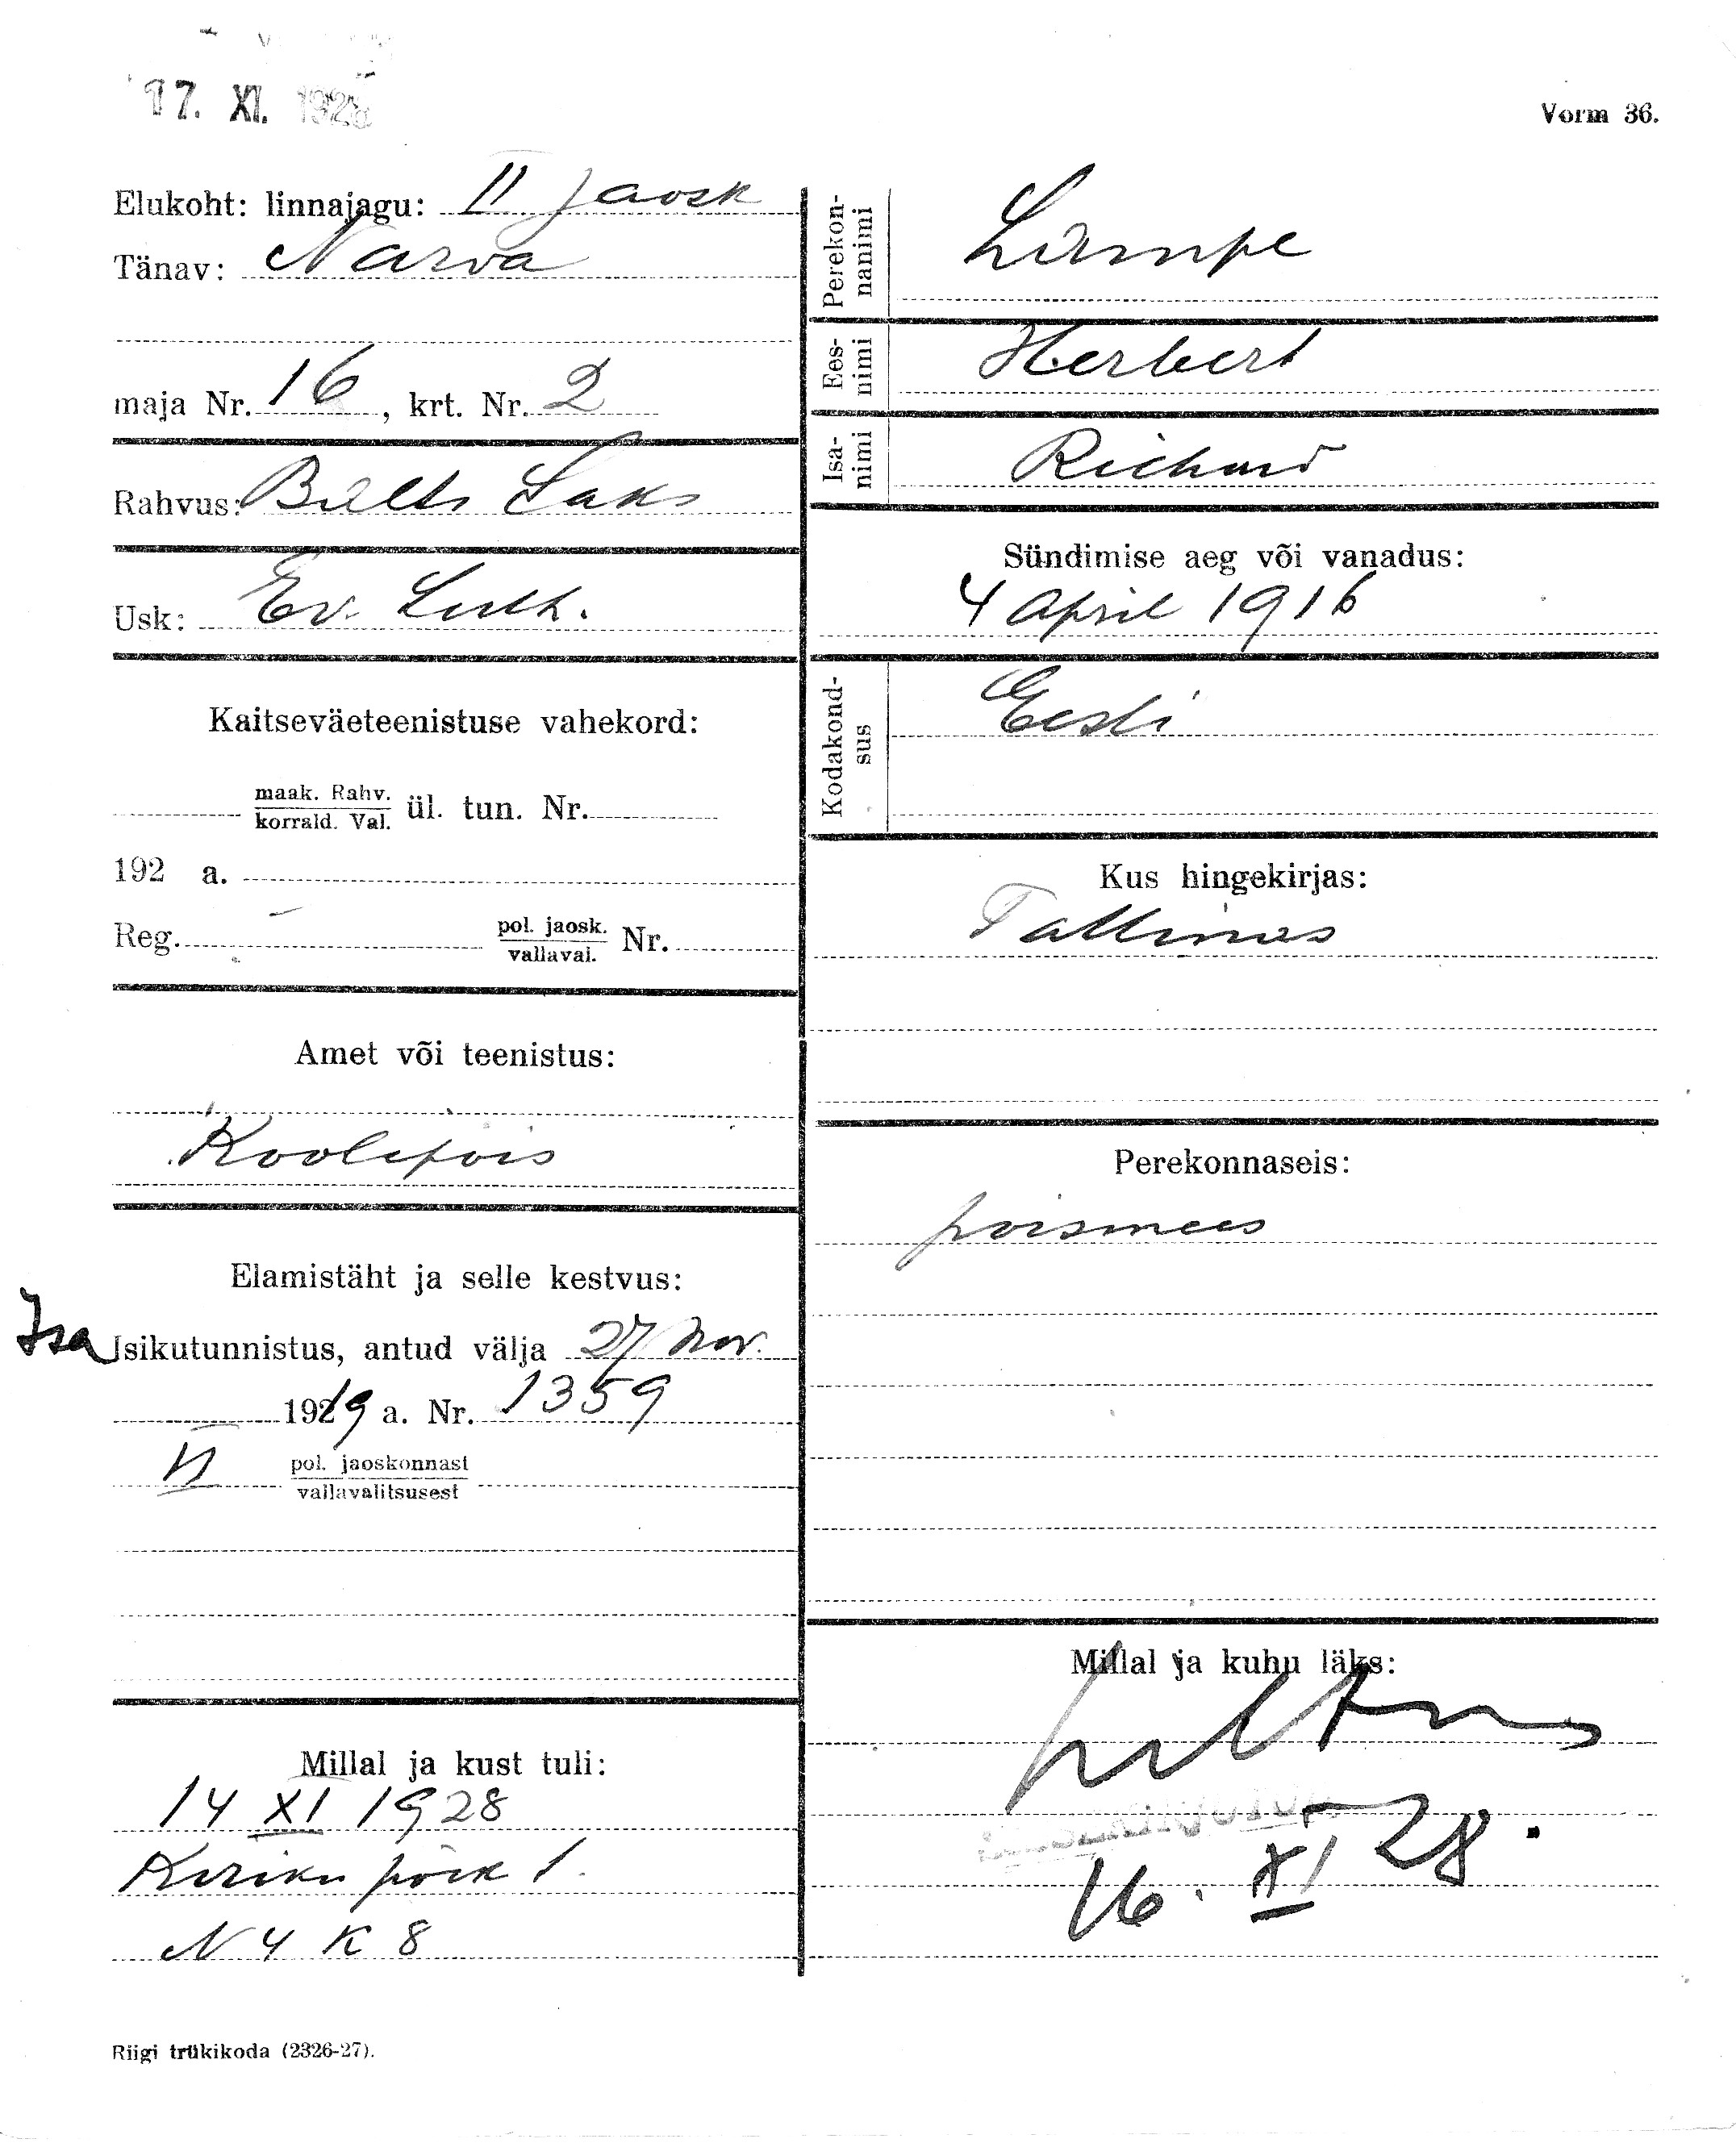 17. XI. 1928
Vorm 36.
Elukoht: linnajagu: II jaosk
Tänav: Narva
maja Nr. 16, krt. Nr. 2
Rahvus: Balti Saks
Usk: Ev. Luth.
Kaitseväeteenistuse vahekord:
maak. Rahv.
korrald. Val. ül. tun. Nr.
192 a.
Reg. – pol. jaosk. Nr.
vallaval.
Amet või teenistus:
Koolipois
Elamistäht ja selle kestvus:
Isa Isikutunnistus, antud välja 27 Nov.
1919 a. Nr. 1359
VI pol. jaoskonnast
vallavalitsusest
Millal ja kust tuli:
14 XI 1928
Kiriku põik 1.
N 4 K 8
Riigi trükikoda (2326-27).
Perekon-
nanimi
Lampe
Ees-
nimi
Herbert
Isa-
nimi
Richard
Sündimise aeg või vanadus:
4 April 1916
Kodakond-
sus
Eesti
Kus hingekirjas:
Tallinas
Perekonnaseis:
poismees
Millal ja kuhu läks:
16. XI 28.